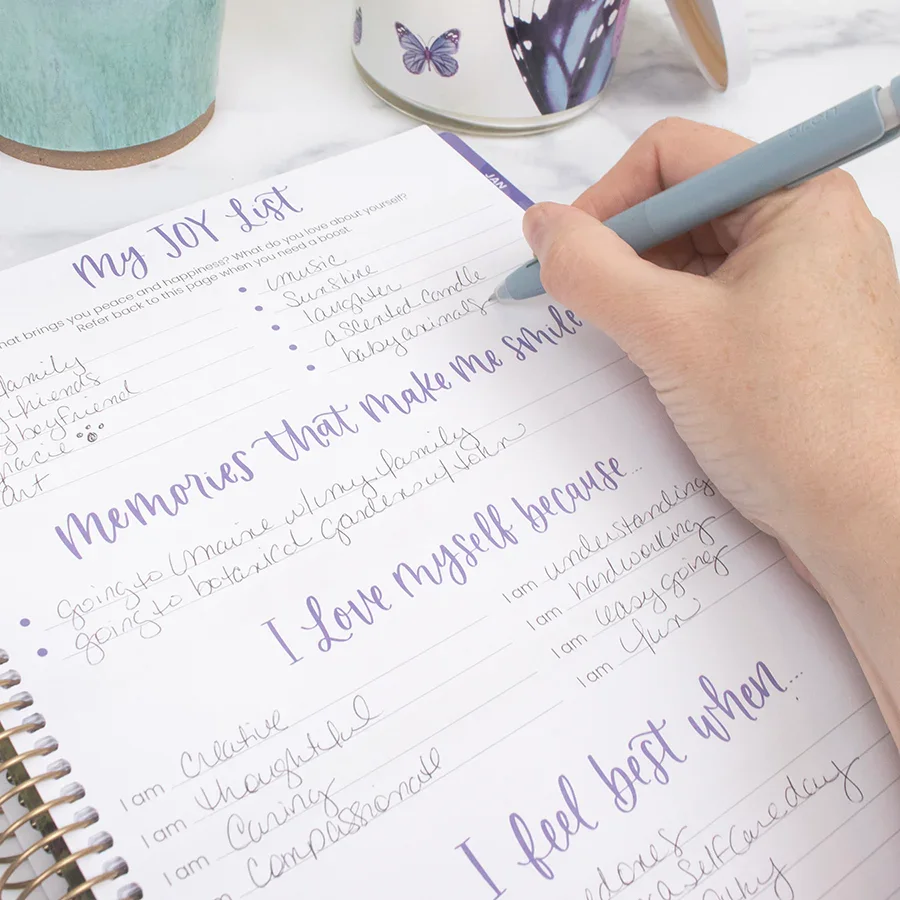 JAN
My JOY List
hat brings you peace and happiness? What do you love about yourself?
Refer back to this page when you need a boost.
family
friends
boyfriend
Gracie
art
music
Sunshine
laughter
a scented candle
baby animals
Memories that make me smile
going to Maine w/my family
going to botanical gardens w/John
I Love myself because...
I am Creative
I am thoughtful
I am Caring
compassionate
I am understanding
I am hardworking
I am easy going
I am fun
I feel best when...
a Self Care day